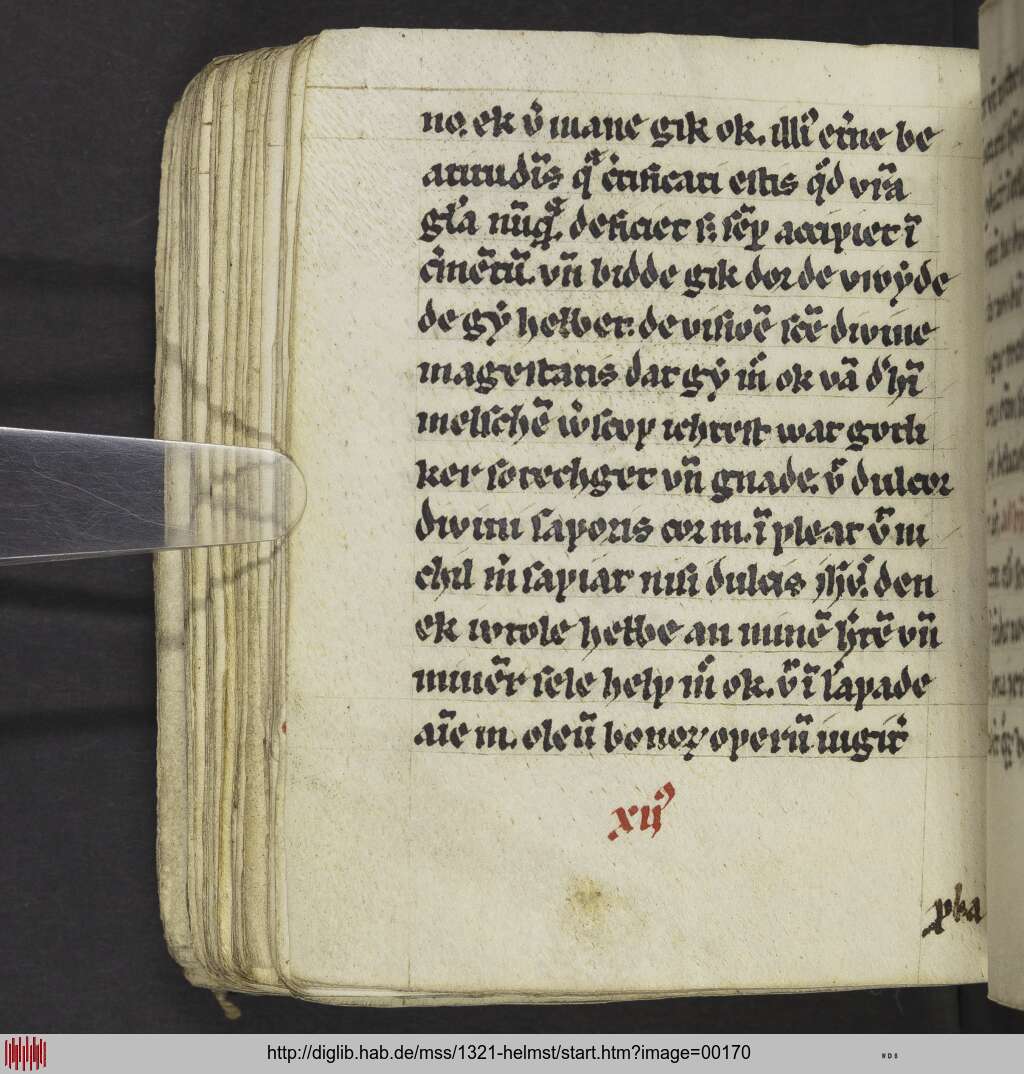 no. ek v̄ mane gik ok. illiꝰ et̾ne be
atitudīs qͣ c̾tificati estis qͦd vr̄a
gl̾a nūqͣ deficiet sꝫ sēꝑ accipiet ī
c̾mētū. vn̄ bidde gik dor de vroẏde
de gẏ hebbet. de visiōe scē diuine
magestatis dat gẏ m̄ ok vā d̾ hī
melschē w̾scop ichtest wat gotli
ker sotechget vn̄ gnade. v̄ dulcor
diuini saporis cor m. īpleat v̄ ni
chil m̄ sapiat nisi dulcis ihc̄. den
ek wrole hebbe an minē h̾tē vn̄
minēr sele help m̄ ok. v̄ ī lāpade
aīe m. oleū bonoꝝ operū iugit̾
xijꝰ
pba
http://diglib.hab.de/mss/1321-helmst/start.htm?image=00170